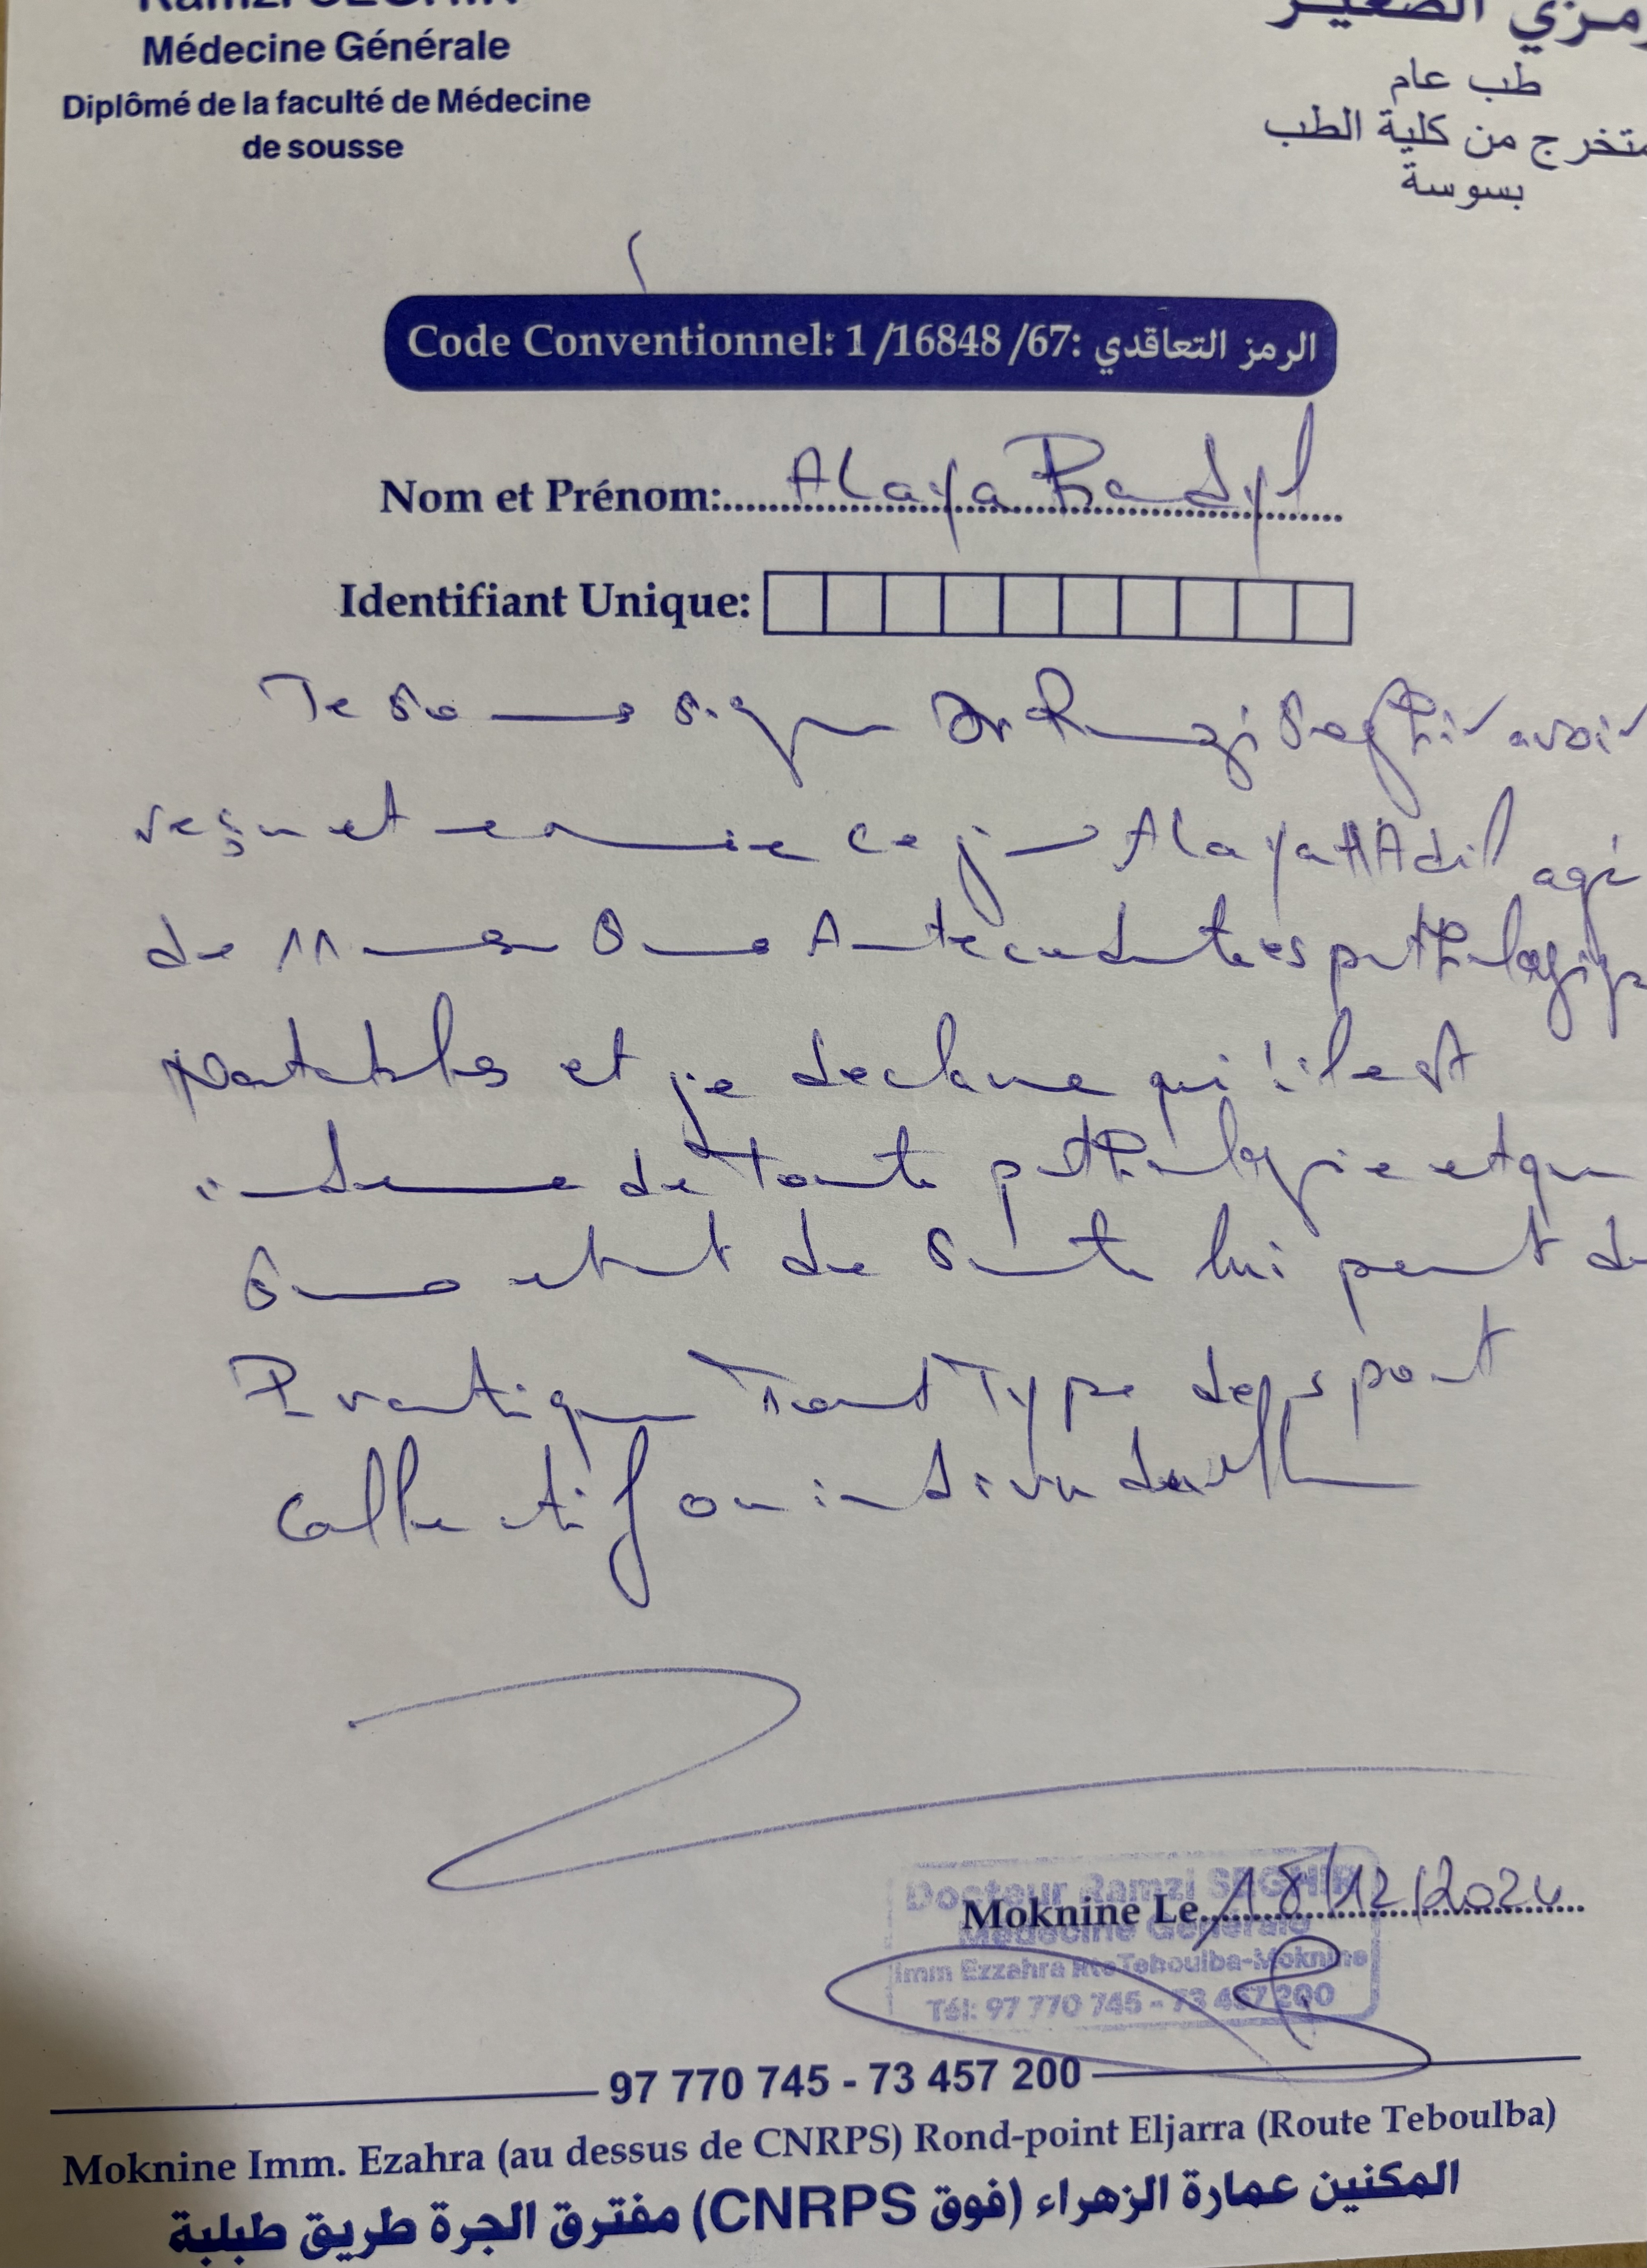 Ramzi SEGHIR
Médecine Générale
Diplômé de la faculté de Médecine
de sousse
رمزي الصغير
طب عام
متخرج من كلية الطب
بسوسة
Code Conventionnel: 1 /16848 /67: الرمز التعاقدي
Nom et Prénom: Alaya
Identifiant Unique:
Je sous signe Dr Ramzi Seghir avoir
reçu et examine ce jour Alaya agé
de 11 sans Antecedents pathologique
notables et je declare qu'il est
indemne de toute pathologie et que
sons etat de sante lui permet de
Pratique Tout Type de sport
collectif ou
Moknine Le 18/12/2024
Docteur Ramzi SEGHIR
Médecine Générale
Imm Ezzahra Rte Teboulba-Moknine
Tél: 97 770 745 - 73 457 200
97 770 745 - 73 457 200
Moknine Imm. Ezahra (au dessus de CNRPS) Rond-point Eljarra (Route Teboulba)
المكنين عمارة الزهراء (فوق CNRPS) مفترق الجرة طريق طبلبة